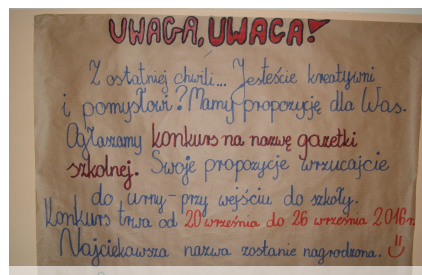 UWAGA, UWAGA!
Z ostatniej chwili... Jesteście kreatywni
i pomysłowi? Mamy propozycję dla Was.
Ogłaszamy konkurs na nazwę gazetki
szkolnej. Swoje propozycje wrzucajcie
do urny - przy wejściu do szkoły.
Konkurs trwa od 20 września do 26 września 2016r.
Najciekawsza nazwa zostanie nagrodzona.